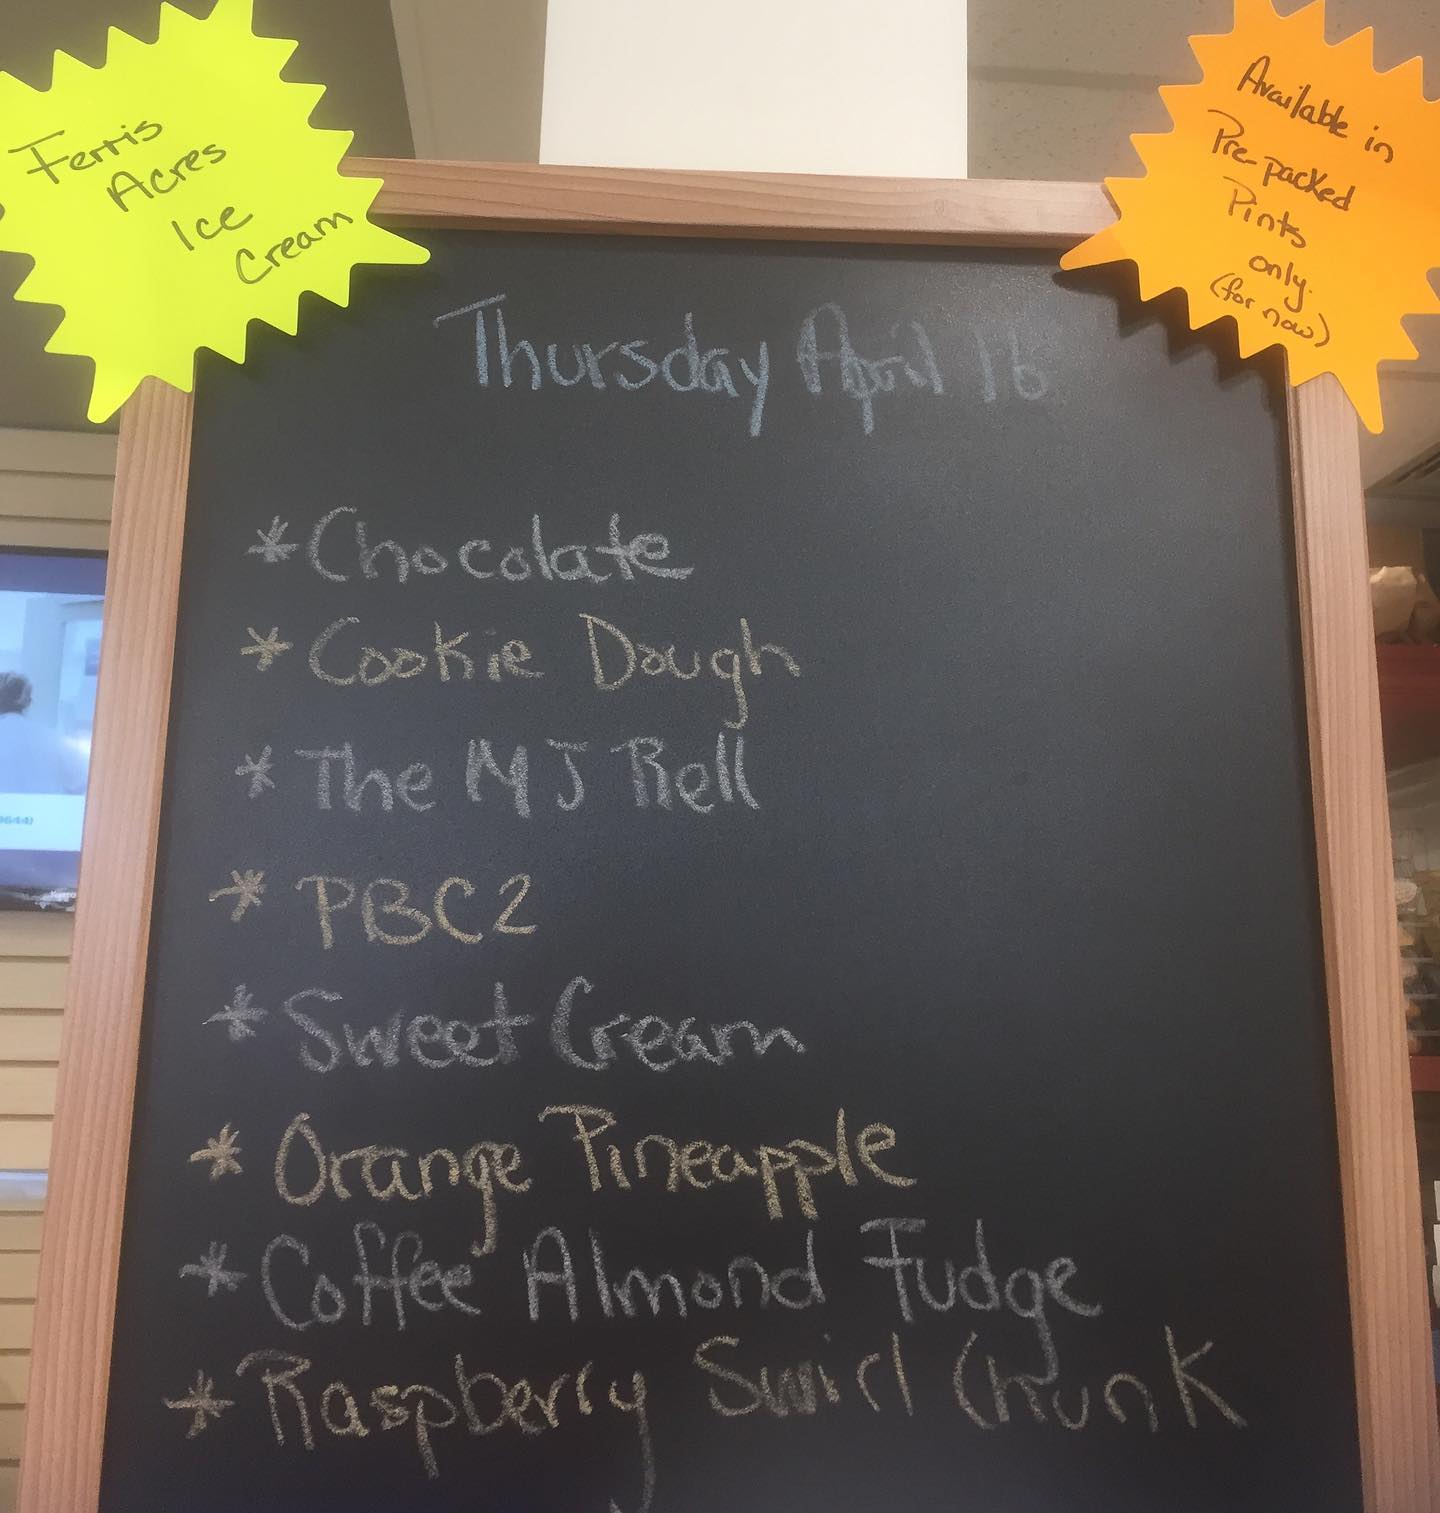 Ferris
Acres
Ice
Cream
Available in
Pre-packed
Pints
only.
(for now)
Thursday April 16
* Chocolate
* Cookie Dough
* The MJ Rell
* PBC2
* Sweet Cream
* Orange Pineapple
* Coffee Almond Fudge
* Raspberry Swirl Chunk